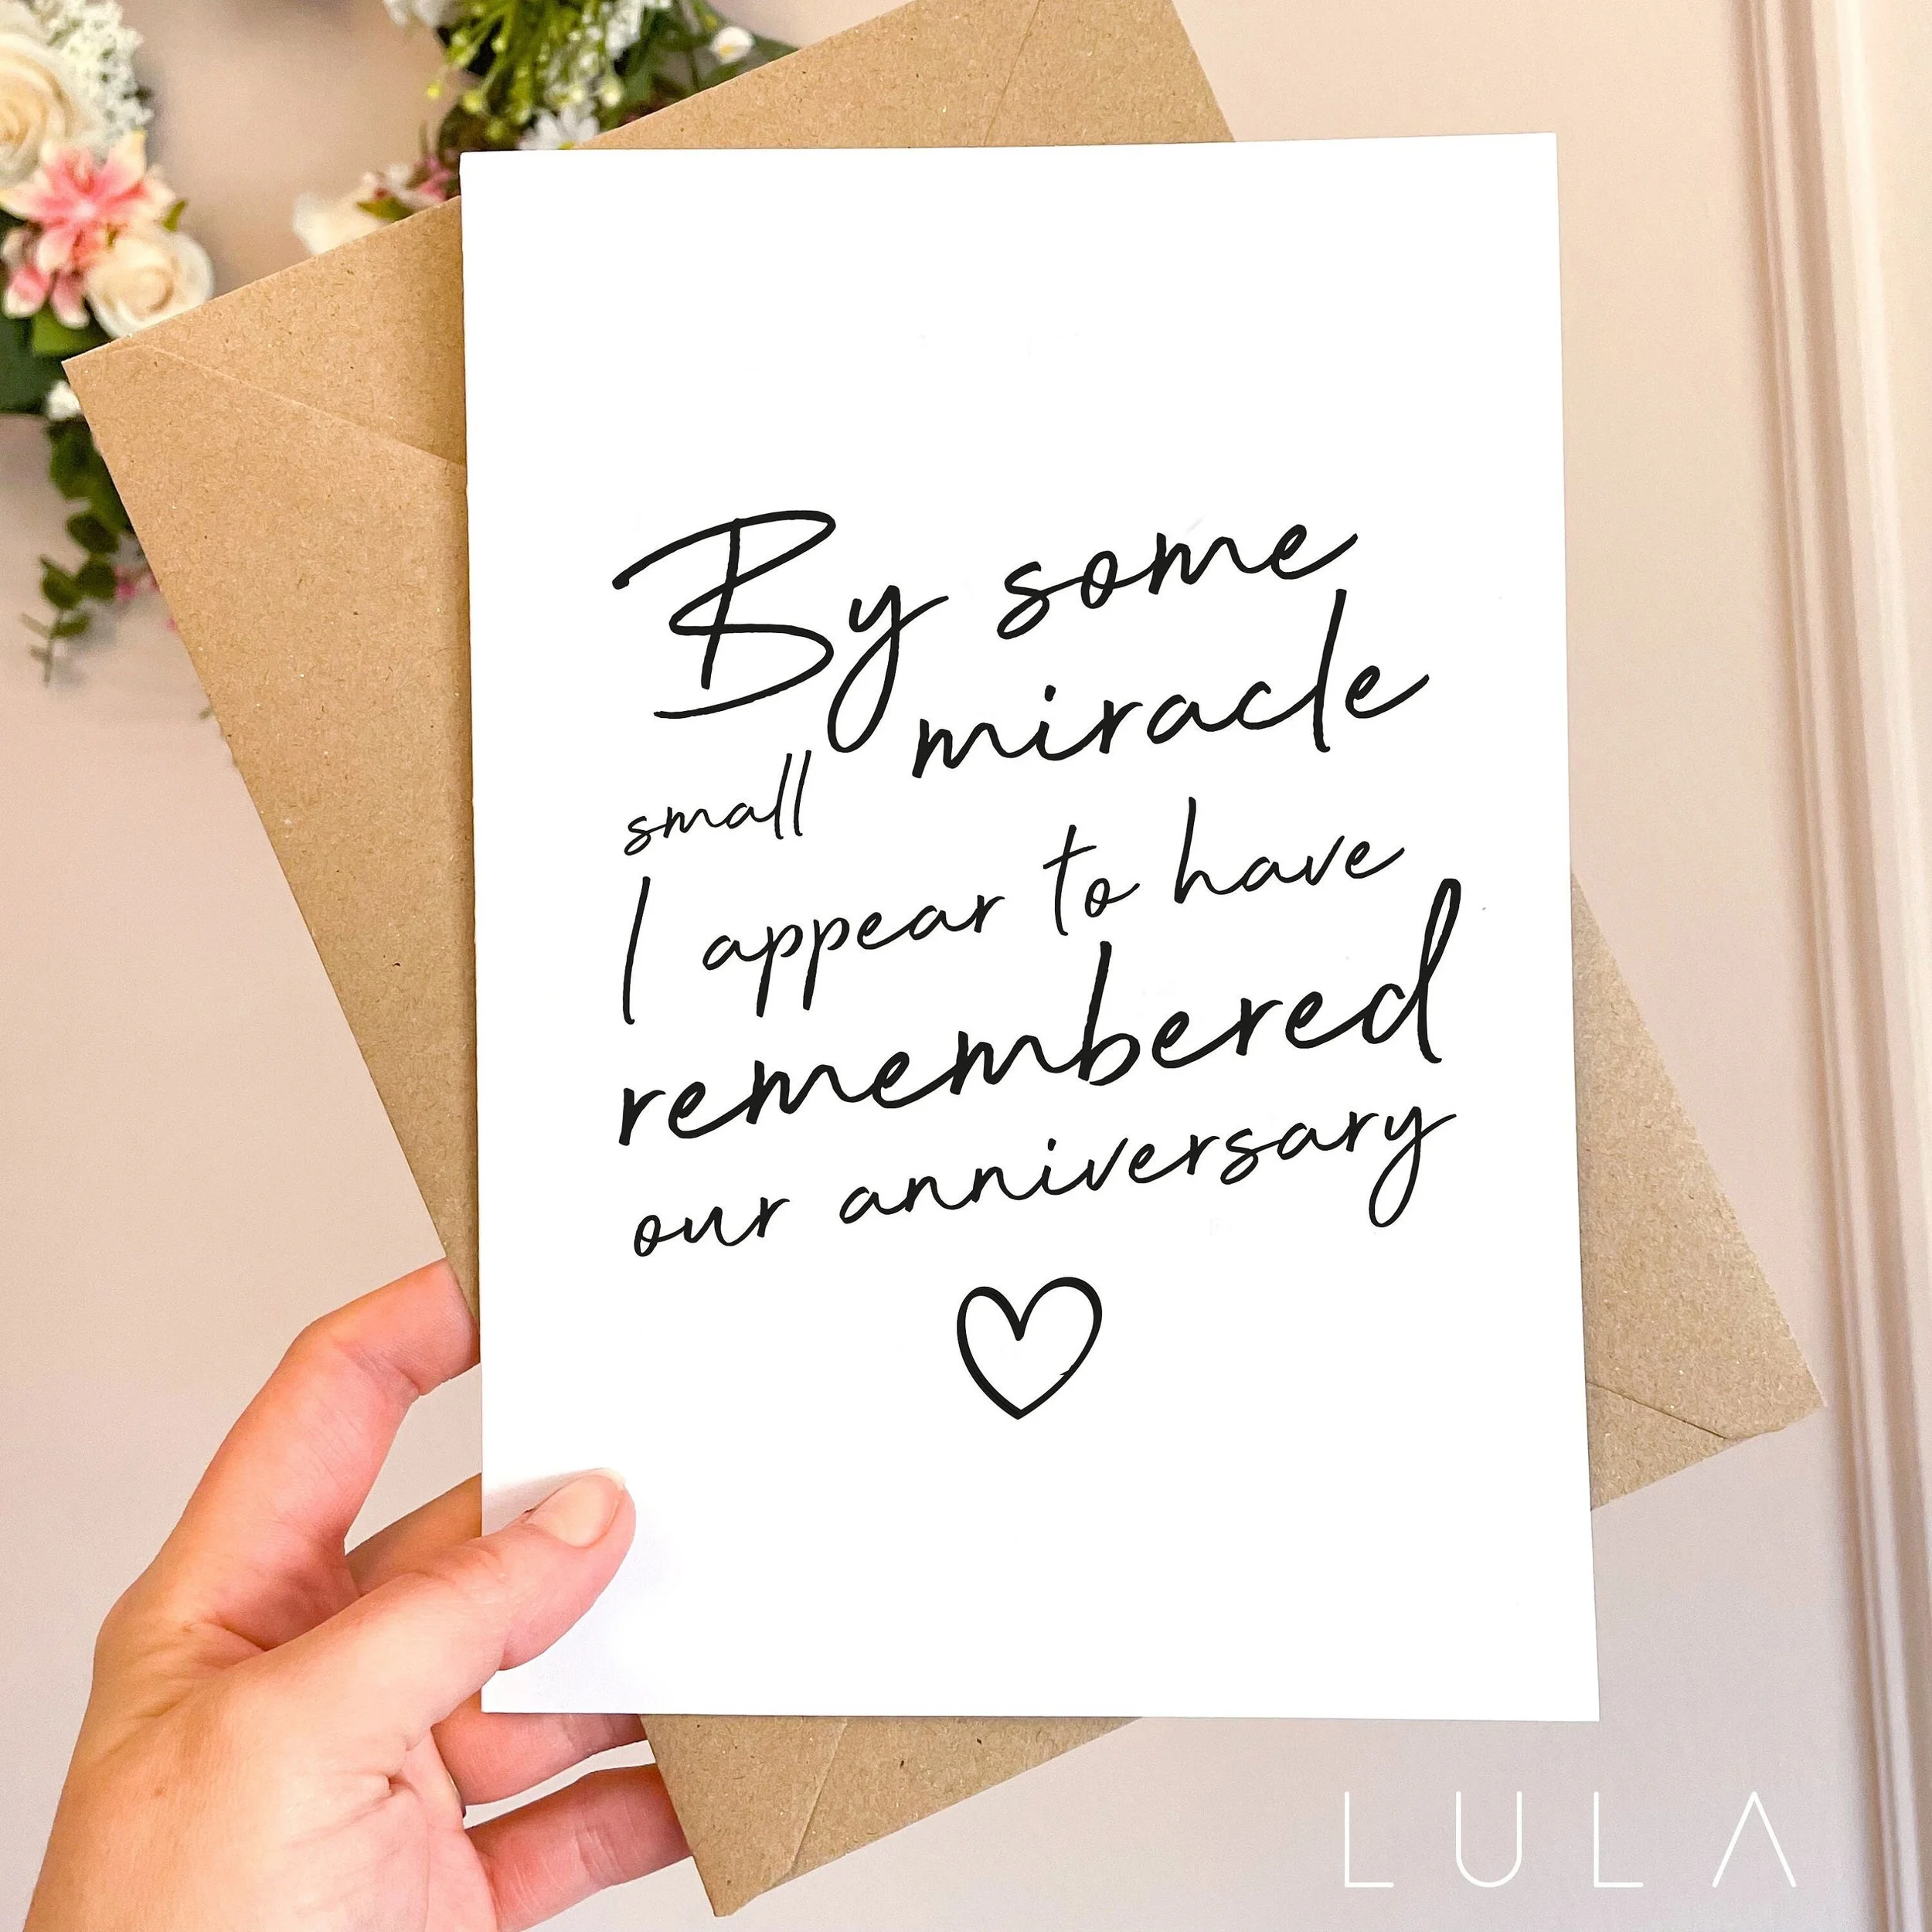 By some
small miracle
I appear to have
remembered
our anniversary
LULA